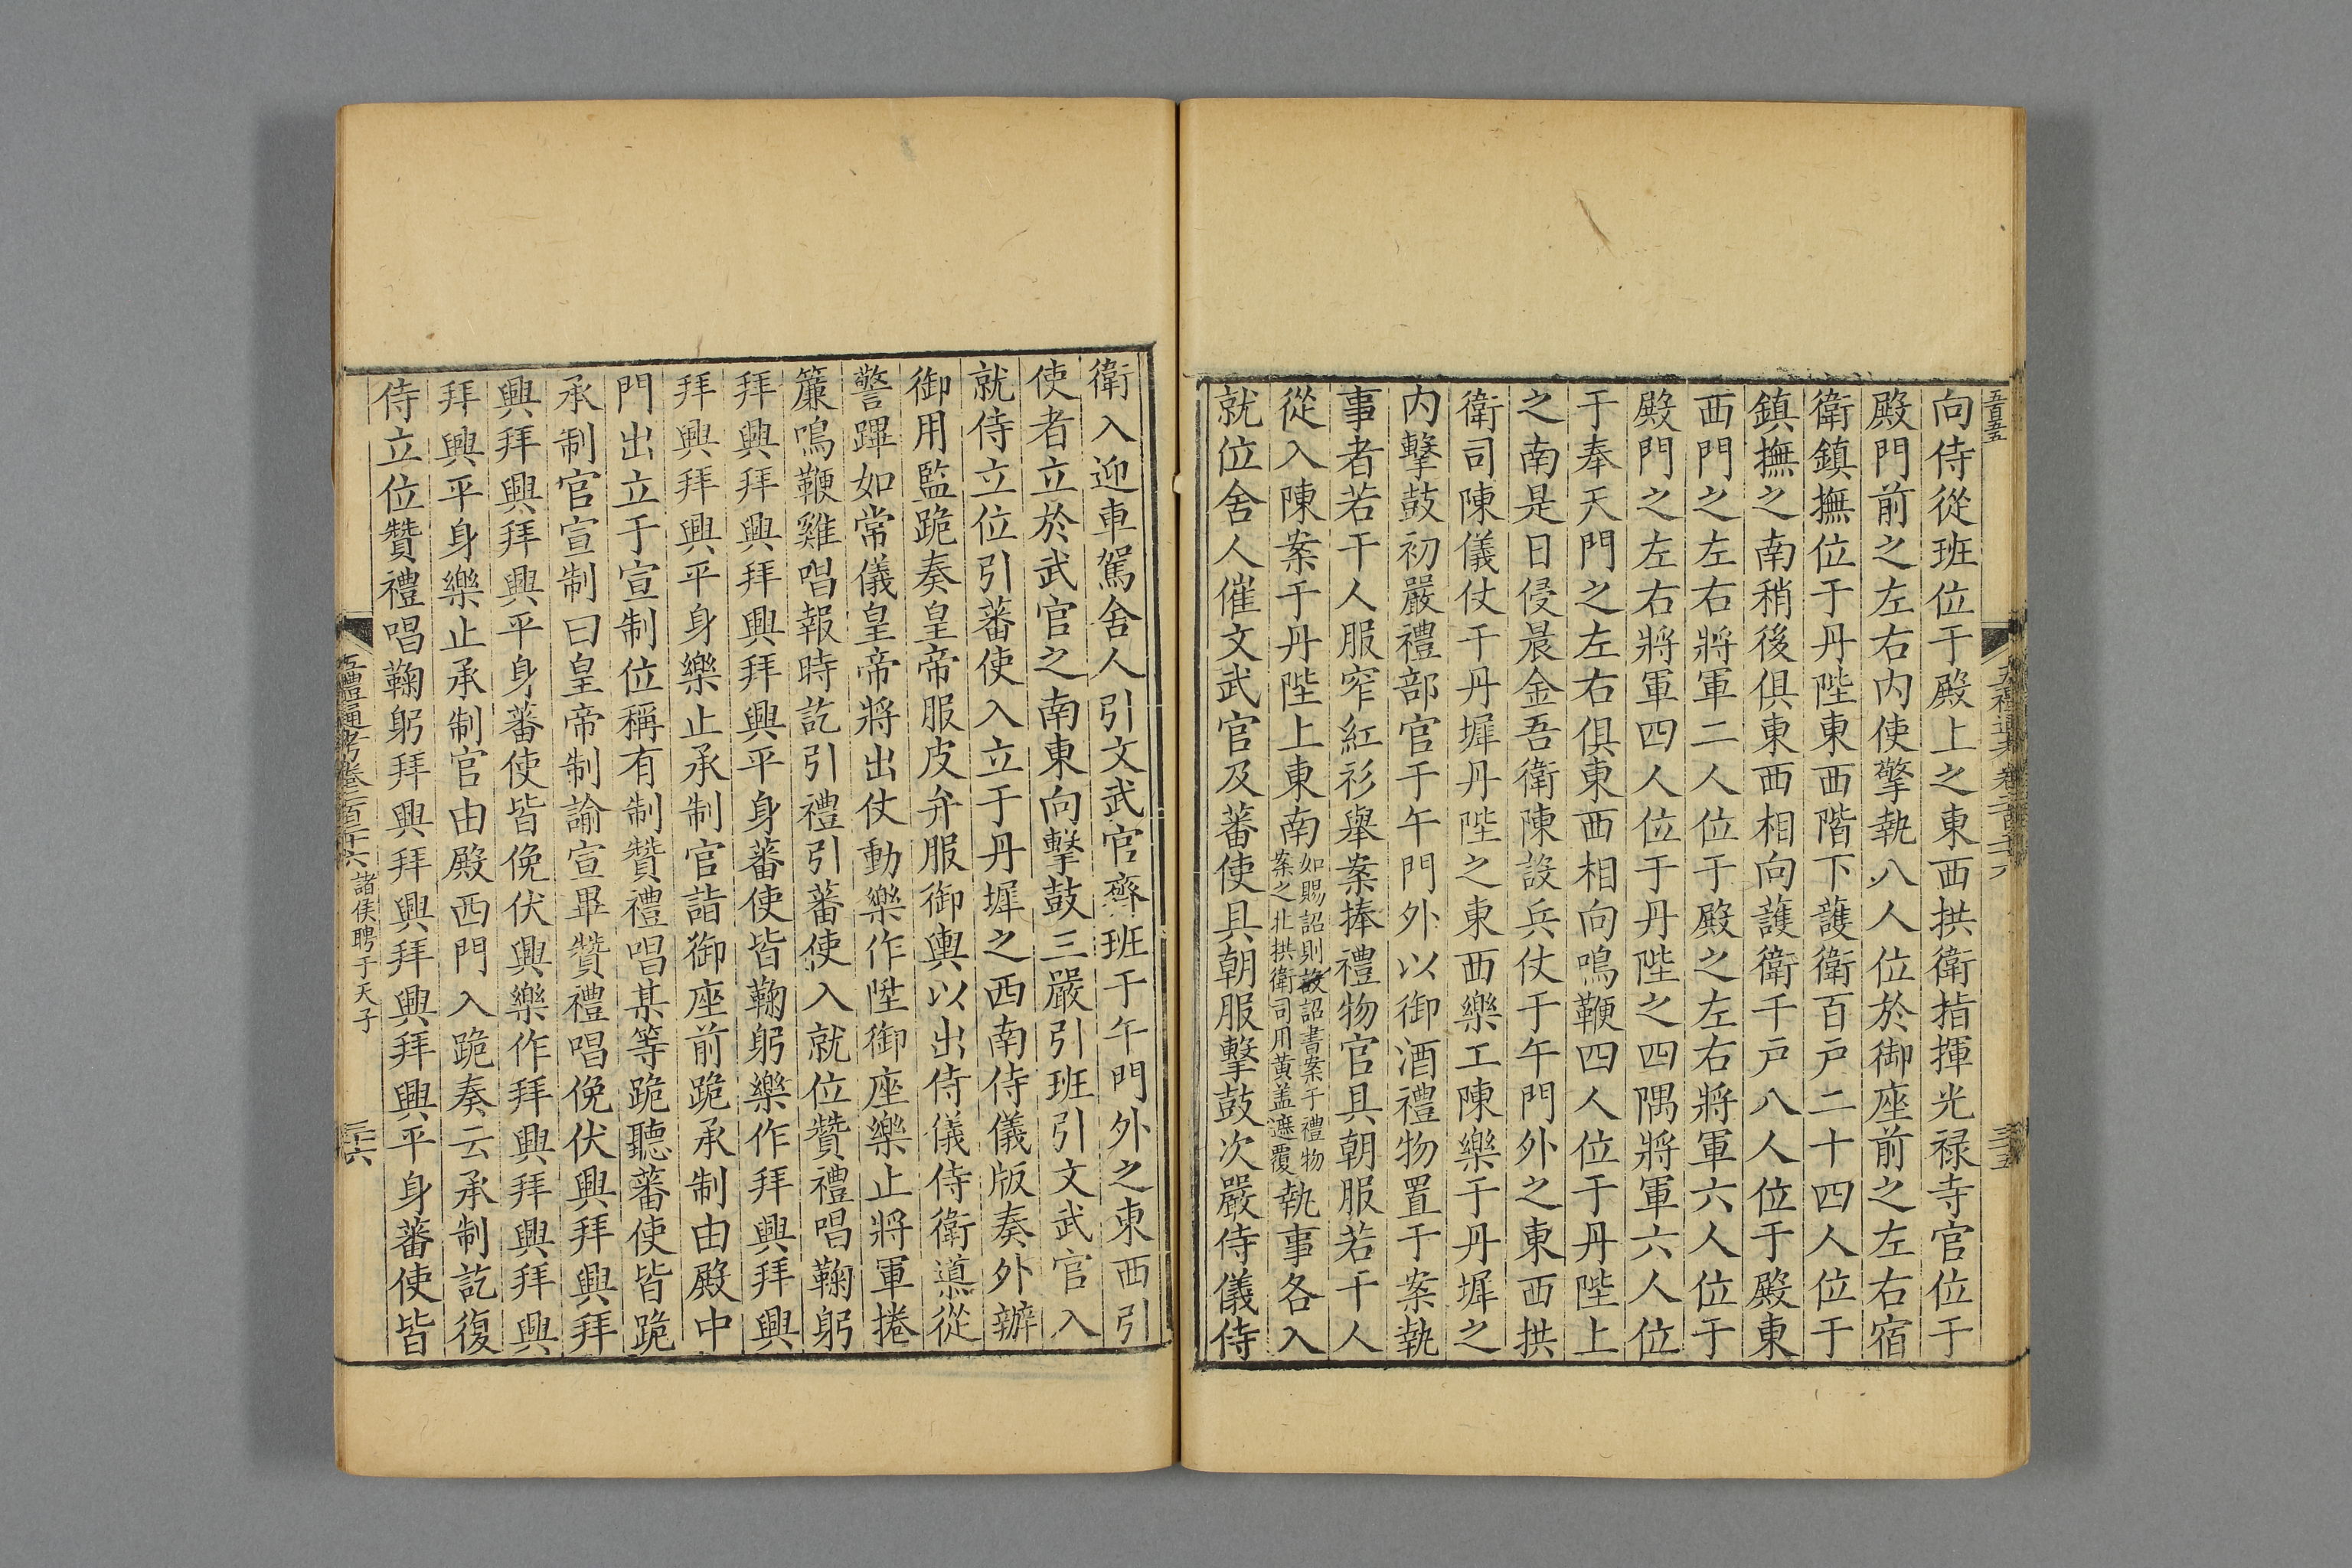 向侍從班位于殿上之東西拱衛指揮光禄寺官位于
殿門前之左右内使擎執八人位於御座前之左右宿
衛鎮撫位于丹陛東西階下護衛百户二十四人位于
鎮撫之南稍後俱東西相向護衛千户八人位于殿東
西門之左右將軍二人位于殿之左右將軍六人位于
殿門之左右將軍四人位于丹陛之四隅將軍六人位
于奉天門之左右俱東西相向鳴鞭四人位于丹陛上
之南是日侵晨金吾衛陳設兵仗于午門外之東西拱
衛司陳儀仗于丹墀丹陛之東西樂工陳樂于丹墀之
内擊鼓初嚴禮部官于午門外以御酒禮物置于案執
事者若干人服窄紅衫舉案捧禮物官具朝服若干人
從入陳案于丹陛上東南如賜詔則設詔書案于禮物案之北拱衛司用黄盖遮覆執事各入
就位舍人催文武官及蕃使具朝服擊鼓次嚴侍儀侍
衛入迎車駕舍人引文武官齊班于午門外之東西引
使者立於武官之南東向擊鼓三嚴引班引文武官入
就侍立位引蕃使入立于丹墀之西南侍儀版奏外辦
御用監跪奏皇帝服皮弁服御輿以出侍儀侍衛導從
警蹕如常儀皇帝將出仗動樂作陞御座樂止將軍捲
簾鳴鞭雞唱報時訖引禮引蕃使入就位贊禮唱鞠躬
拜興拜興拜興拜興平身蕃使皆鞠躬樂作拜興拜興
拜興拜興平身樂止承制官詣御座前跪承制由殿中
門出立于宣制位稱有制贊禮唱某等跪聽蕃使皆跪
承制官宣制曰皇帝制諭宣畢贊禮唱俛伏興拜興拜
興拜興拜興平身蕃使皆俛伏興樂作拜興拜興拜興
拜興平身樂止承制官由殿西門入跪奏云承制訖復
侍立位贊禮唱鞠躬拜興拜興拜興拜興平身蕃使皆
五禮通考卷二百二十六 諸侯聘于天子 三十六